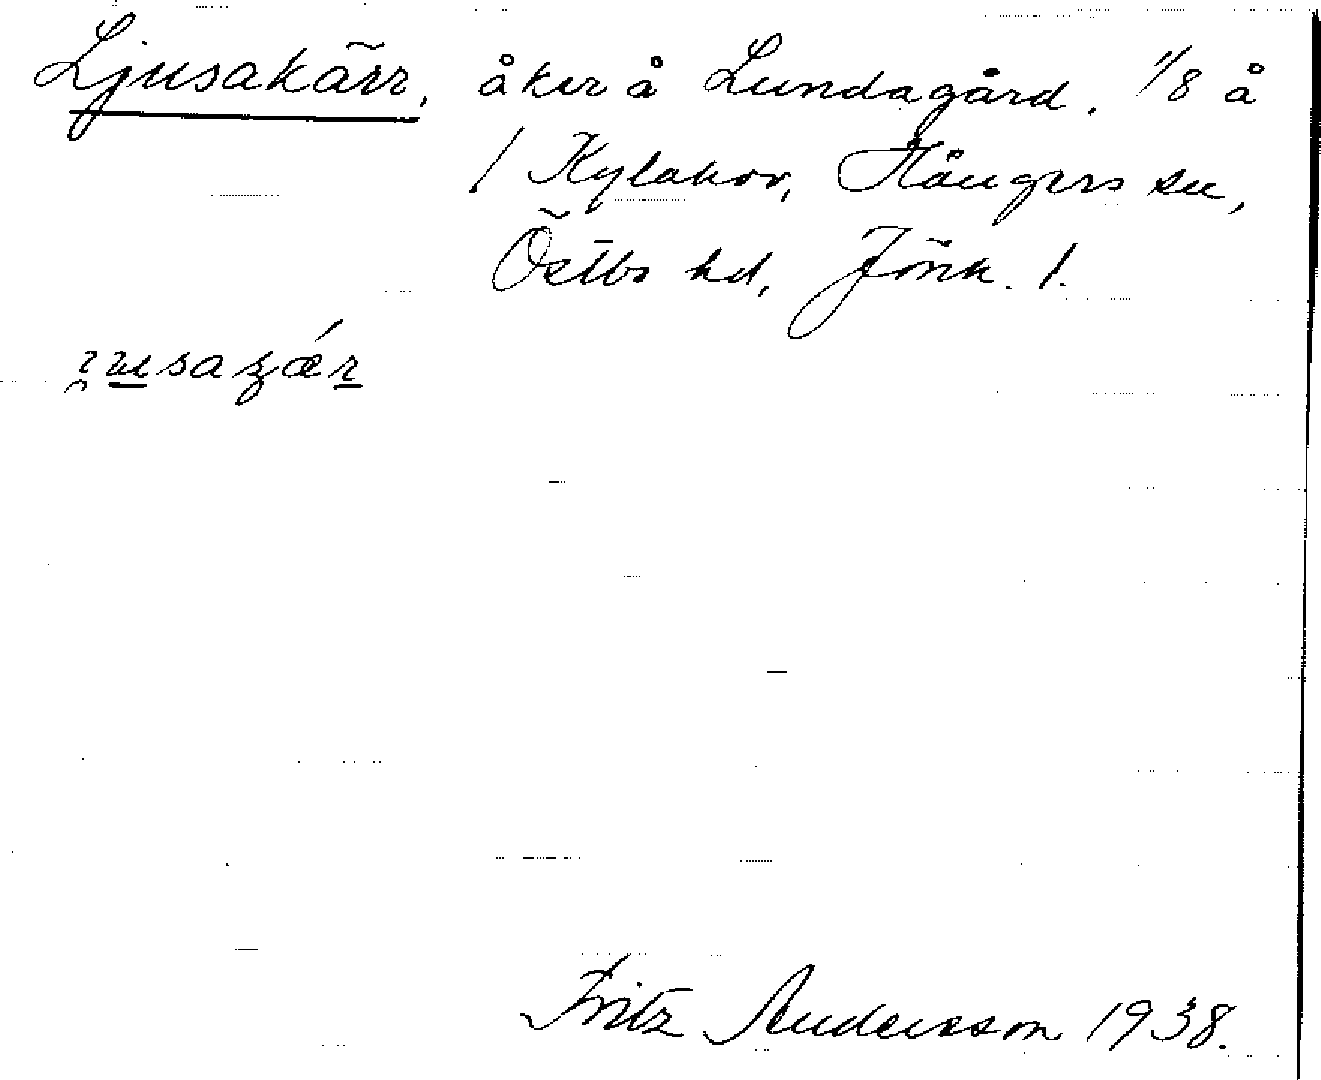 Ljusakärr, åker å Lundagård. 1/8 å
1 Kylakov, Hångers sn,
Östbo hd, Jönk. l.
Fritz Andersson 1938.